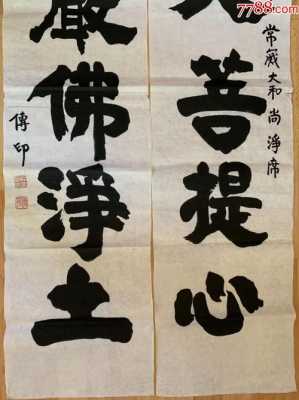 7788.com
常大和尚淨席
菩提心
嚴佛淨土
傳印